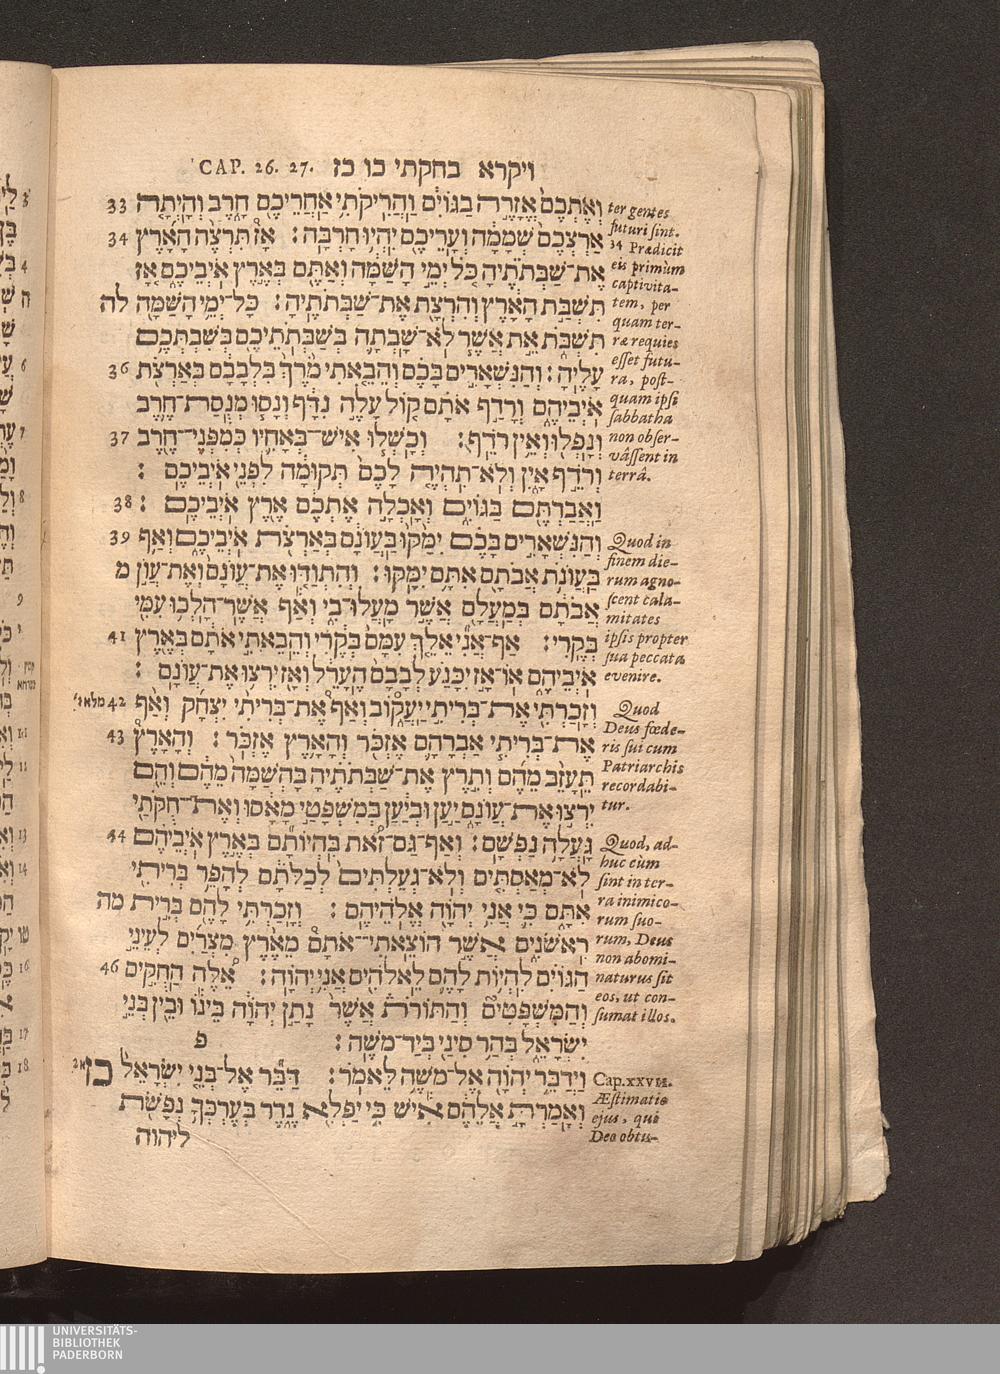 ויקרא בחקתי כו כז CAP. 26. 27.
וְאֶתְכֶם אֱזָרֶה בַגּוֹיִם וַהֲרִיקֹתִי אַחֲרֵיכֶם חָרֶב וְהָיְתָה 33
אַרְצְכֶם שְׁמָמָה וְעָרֵיכֶם יִהְיוּ חָרְבָּה: אָז תִּרְצֶה הָאָרֶץ 34
אֶת־שַׁבְּתֹתֶיהָ כֹּל יְמֵי הָשַּׁמָּה וְאַתֶּם בְּאֶרֶץ אֹיְבֵיכֶם אָז
תִּשְׁבַּת הָאָרֶץ וְהִרְצָת אֶת־שַׁבְּתֹתֶיהָ: כָּל־יְמֵי הָשַּׁמָּה לה
תִּשְׁבֹּת אֵת אֲשֶׁר לֹא־שָׁבְתָה בְּשַׁבְּתֹתֵיכֶם בְּשִׁבְתְּכֶם
עָלֶיהָ: וְהַנִּשְׁאָרִים בָּכֶם וְהֵבֵאתִי מֹרֶךְ בִּלְבָבָם בְּאַרְצֹת 36
אֹיְבֵיהֶם וְרָדַף אֹתָם קוֹל עָלֶה נִדָּף וְנָסוּ מְנֻסַת־חֶרֶב
וְנָפְלוּ וְאֵין רֹדֵף: וְכָשְׁלוּ אִישׁ־בְּאָחִיו כְּמִפְּנֵי־חֶרֶב 37
וְרֹדֵף אָיִן וְלֹא־תִהְיֶה לָכֶם תְּקוּמָה לִפְנֵי אֹיְבֵיכֶם :
וַאֲבַדְתֶּם בַּגּוֹיִם וְאָכְלָה אֶתְכֶם אֶרֶץ אֹיְבֵיכֶם : 38
וְהַנִּשְׁאָרִים בָּכֶם יִמַּקּוּ בַּעֲוֹנָם בְּאַרְצֹת אֹיְבֵיכֶם וְאַף 39
בַּעֲוֹנֹת אֲבֹתָם אִתָּם יִמָּקּוּ: וְהִתְוַדּוּ אֶת־עֲוֹנָם וְאֶת־עֲוֹן מ
אֲבֹתָם בְּמַעֲלָם אֲשֶׁר מָעֲלוּ־בִי וְאַף אֲשֶׁר־הָלְכוּ עִמִּי
בְּקֶרִי: אַף־אֲנִי אֵלֵךְ עִמָּם בְּקֶרִי וְהֵבֵאתִי אֹתָם בְּאֶרֶץ 41
אֹיְבֵיהֶם אוֹ־אָז יִכָּנַע לְבָבָם הֶעָרֵל וְאָז יִרְצוּ אֶת־עֲוֹנָם :
וְזָכַרְתִּי אֶת־בְּרִיתִי יַעֲקוֹב וְאַף אֶת־בְּרִיתִי יִצְחָק וְאַף 42
אֶת־בְּרִיתִי אַבְרָהָם אֶזְכֹּר וְהָאָרֶץ אֶזְכֹּר : וְהָאָרֶץ 43
תֵּעָזֵב מֵהֶם וְתִרֶץ אֶת־שַׁבְּתֹתֶיהָ בָּהְשַׁמָּה מֵהֶם וְהֵם
יִרְצוּ אֶת־עֲוֹנָם יַעַן וּבְיַעַן בְּמִשְׁפָּטַי מָאָסוּ וְאֶת־חֻקֹּתַי
גָּעֲלָה נַפְשָׁם: וְאַף־גַּם־זֹאת בִּהְיוֹתָם בְּאֶרֶץ אֹיְבֵיהֶם 44
לֹא־מְאַסְתִּים וְלֹא־גְעַלְתִּים לְכַלֹּתָם לְהָפֵר בְּרִיתִי
אִתָּם כִּי אֲנִי יְהוָה אֱלֹהֵיהֶם : וְזָכַרְתִּי לָהֶם בְּרִית מה
רִאשֹׁנִים אֲשֶׁר הוֹצֵאתִי־אֹתָם מֵאֶרֶץ מִצְרַיִם לְעֵינֵי
הַגּוֹיִם לִהְיוֹת לָהֶם לֵאלֹהִים אֲנִי יְהוָה: אֵלֶּה הַחֻקִּים 46
וְהַמִּשְׁפָּטִים וְהַתּוֹרֹת אֲשֶׁר נָתַן יְהוָה בֵּינוֹ וּבֵין בְּנֵי
יִשְׂרָאֵל בְּהַר סִינַי בְּיַד־מֹשֶׁה : פ
וַיְדַבֵּר יְהוָה אֶל־מֹשֶׁה לֵּאמֹר: דַּבֵּר אֶל־בְּנֵי יִשְׂרָאֵל כז
וְאָמַרְתָּ אֲלֵהֶם אִישׁ כִּי יַפְלִא נֶדֶר בְּעֶרְכְּךָ נְפָשֹׁת
ליהוה
ter gentes
futuri sint.
34 Prædicit
eis primùm
captivita-
tem, per
quam ter-
ræ requies
esset futu-
ra, post-
quam ipsi
sabbatha
non obser-
vâssent in
terrâ.
Quod in
finem die-
rum agno-
scent cala-
mitates
ipsis propter
sua peccata
evenire.
Quod
Deus fœde-
ris sui cum
Patriarchis
recordabi-
tur.
Quod, ad-
huc eùm
sint in ter-
ra inimico-
rum suo-
rum, Deus
non abomi-
naturus sit
eos, ut con-
sumat illos.
Cap. XXVII.
Æstimatio
ejus, qui
Deo obtu-
UNIVERSITÄTS-
BIBLIOTHEK
PADERBORN